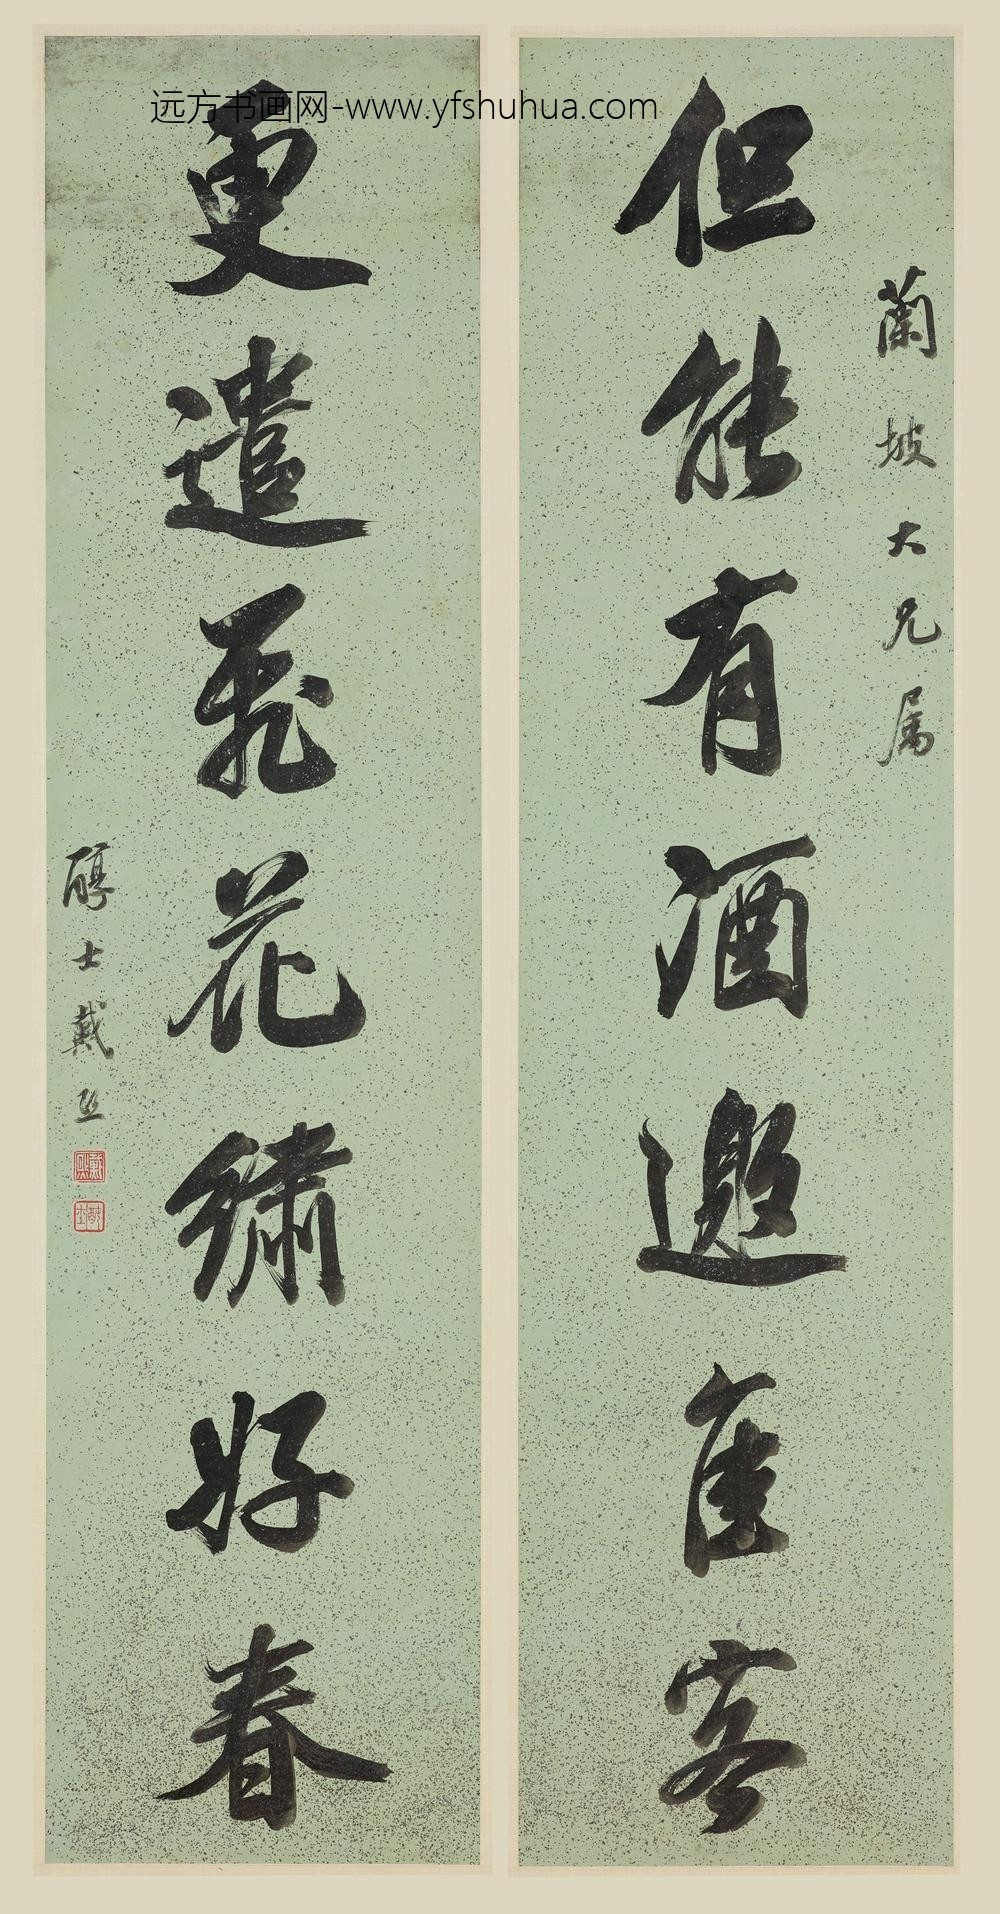 远方书画网-www.yfshuhua.com
蘭坡大兄属
但能有酒邀佳客
更遣飛花繡好春
醇士戴熙
戴熙
醇士